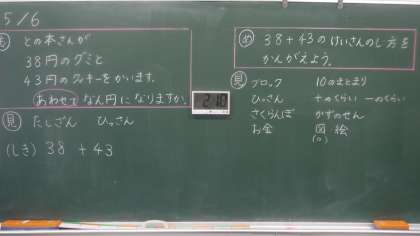 5/6
も
との本さんが
38円のグミと
43円のクッキーをかいます。
あわせて なん円になりますか。
見 たしざん ひっさん
(しき) 38 + 43
210
め 38+43のけいさんのし方を
かんがえよう。
見 ブロック 10のまとまり
ひっさん 十のくらい 一のくらい
さくらんぼ かずのせん
お金 図 絵
(〇)